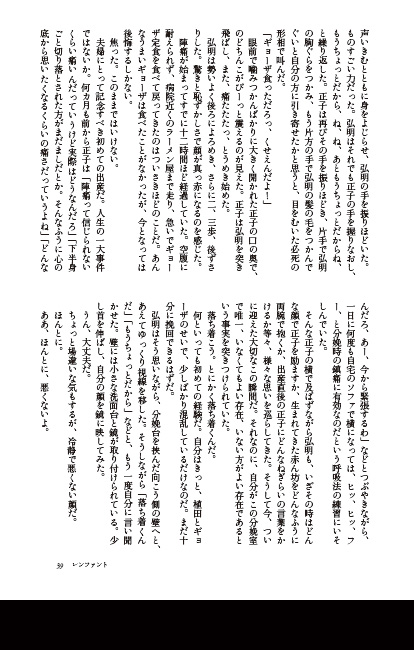 声いきむとともに身をよじらせ、弘明の手を振りほどいた。
ものすごい力だった。弘明はそれでも正子の手を握りなおし、
もうちょっとだから、ね、ね、あともうちょっとだからね、
と繰り返した。正子は再びその手を振りほどき、片手で弘明
の胸ぐらをつかみ、もう片方の手で弘明の髪の毛をつかんで
ぐいと自分の方に引き寄せたかと思うと、目をむいた必死の
形相で叫んだ。
「ギョーザ食っただろっ、くせえんだよー！」
眼前で噛みつかんばかりに大きく開かれた正子の口の奥で、
のどちんこがびーっと震えるのが見えた。正子は弘明を突き
飛ばし、また、痛たたたっ、とうめき始めた。
弘明は勢いよく後ろによろめき、さらに二、三歩、後ずさ
りした。驚きと恥ずかしさで顔が真っ赤になるのを感じた。
陣痛が始まってすでに十二時間ほど経過していた。空腹に
耐えられず、病院近くのラーメン屋まで走り、急いでギョー
ザ定食を食べて戻ってきたのはついさきほどのことだ。あん
なうまいギョーザは食べたことがなかったが、今となっては
後悔するしかない。
焦った。このままではいけない。
夫婦にとって記念すべき初めての出産だ。人生の一大事件
ではないか。何カ月も前から正子は「陣痛って信じられない
くらい痛いんだっていうけど実際はどうなんだろ」「下半身
ごと切り落とされた方がまだましだとか。そんなふうに心の
底から思いたくなるくらいの痛さだっていうよね」「どんな
んだろ、あー、今から緊張するわ」などとつぶやきながら、
一日に何度も自宅のソファで横になっては、ヒッ、ヒッ、フ
ー、と分娩時の鎮痛に有効なのだという呼吸法の練習にいそ
しんでいた。
そんな正子の横で及ばずながら弘明も、いざその時はどん
な顔で正子を励ますか、生まれてきた赤ん坊をどんなふうに
両腕で抱くか、出産直後の正子にどんなねぎらいの言葉をか
けるか等々、様々な思いを巡らしてきた。そうして今、つい
に迎えた大切なこの瞬間だ。それなのに、自分がこの分娩室
で唯一、いなくてもよい存在、いない方がよい存在であると
いう事実を突きつけられていた。
落ち着こう。とにかく落ち着くんだ。
何といっても初めての経験だ。自分はきっと、植田とギョ
ーザのせいで、少しばかり混乱しているだけなのだ。まだ十
分に挽回できるはずだ。
弘明はそう思いながら、分娩台を挟んだ向こう側の壁へと、
あえてゆっくり視線を移した。そうしながら「落ち着くん
だ」「もうちょっとだから」などと、もう一度自分に言い聞
かせた。壁には小さな洗面台と鏡が取り付けられている。少
し首を伸ばし、自分の顔を鏡に映してみた。
うん、大丈夫だ。
ちょっと場違いな気もするが、冷静で悪くない顔だ。
ほんとに。
ああ、ほんとに、悪くないよ。
39 レンファント